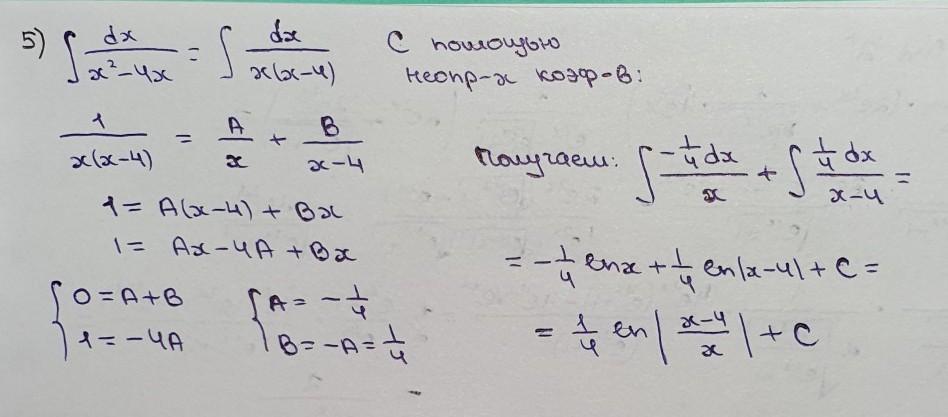 5) ∫ dx/(x²-4x) = ∫ dx/(x(x-4)) С помощью
неопр-х коэф-в:
1/(x(x-4)) = A/x + B/(x-4)
1 = A(x-4) + Bx
1 = Ax - 4A + Bx
{ 0 = A + B
1 = -4A
{ A = -1/4
B = -A = 1/4
Получаем: ∫ (-1/4 dx)/x + ∫ (1/4 dx)/(x-4) =
= -1/4 ln x + 1/4 ln|x-4| + C =
= 1/4 ln|(x-4)/x| + C